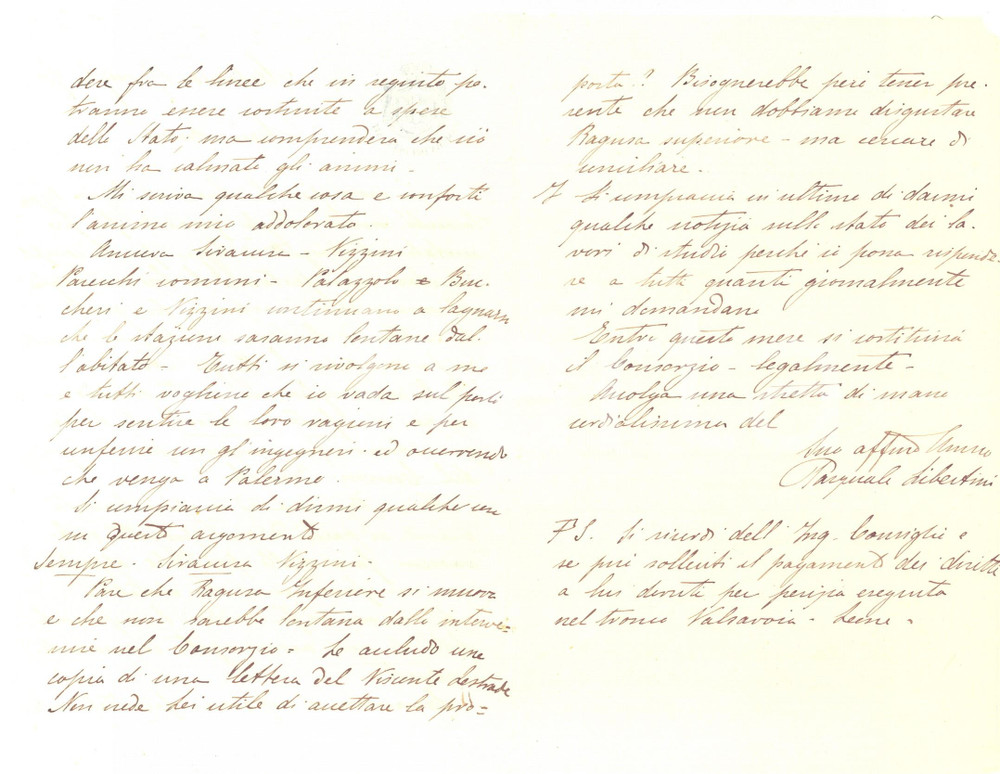 dere fra le linee che in seguito po-
tranno essere costruite a spese
dello Stato; ma comprenderà che ciò
non ha calmato gli animi -
Mi scriva qualche cosa e conforti
l'animo mio addolorato.
Ancora Siracusa - Vizzini
Parecchi comuni - Palazzolo e Buc-
cheri e Vizzini continuano a lagnarsi
che le stazioni saranno lontane dal-
l'abitato - Tutti si rivolgono a me
e tutti vogliono che io vada sul posto
per sentire le loro ragioni e per
conferire con gl'ingegneri ed occorrendo
che venga a Palermo.
Si compiaccia di dirmi qualche cosa
su questo argomento
Sempre - Siracusa Vizzini -
Pare che Ragusa Inferiore si muova
e che non sarebbe lontana dallo interve-
nire nel Consorzio - Le accludo una
copia di una lettera del Visconte Lestrade
Non crede Lei utile di accettare la pro=
posta? Bisognerebbe però tener pre-
sente che non dobbiamo disgustare
Ragusa superiore - ma cercare di
conciliare.
Si compiaccia in ultimo di darmi
qualche notizia sullo stato dei la-
vori di studio perchè io possa risponde-
re a tutti quanti giornalmente
mi domandano
Entro questo mese si costituirà
il Consorzio - legalmente -
Accolga una stretta di mano
cordialissima del
Suo affmo Amico
Pasquale Libertini
P.S. Si ricordi dell'Ing. Consiglio e
se può solleciti il pagamento dei diritti
a lui dovuti per perizia eseguita
nel tronco Valsavoia - Leone -